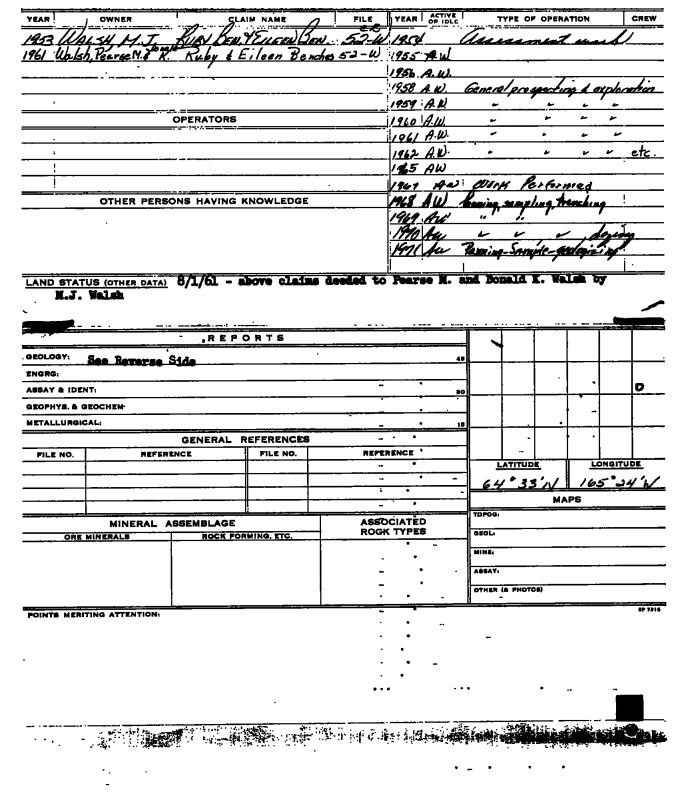 YEAR OWNER CLAIM NAME FILE
1953 WALSH M.J. RUBY BEN. & EILEEN BEN. 52-W
1961 Walsh, Pearse M. & Donald K. Ruby & Eileen Benches 52-W
OPERATORS
OTHER PERSONS HAVING KNOWLEDGE
YEAR ACTIVE OF IDLE TYPE OF OPERATION CREW
1954 Assessment work
1955 A.W
1956 A.W.
1958 A.W. General prospecting & exploration
1959 A.W " " " "
1960 A.W. " " " "
1961 A.W. " " " "
1962 A.W. " " " " etc.
1965 AW
1967 AW: WORK Performed
1968 AW Panning, sampling, trenching
1969 AW " "
1970 AW " " " dozing
1971 AW Panning-Sample-geologizing
LAND STATUS (OTHER DATA) 8/1/61 - above claims deeded to Pearse M. and Donald K. Walsh by
M.J. Walsh
REPORTS
GEOLOGY: See Reverse Side 45
ENGRG:
ASSAY & IDENT: 30
GEOPHYS. & GEOCHEM
METALLURGICAL: 15
GENERAL REFERENCES
FILE NO. REFERENCE FILE NO. REFERENCE
LATITUDE LONGITUDE
64°33'N 165°24'W
MAPS
TOPOG:
GEOL:
MINE:
ASSAY:
OTHER (& PHOTOS)
MINERAL ASSEMBLAGE
ORE MINERALS ROCK FORMING, ETC.
ASSOCIATED
ROCK TYPES
POINTS MERITING ATTENTION: